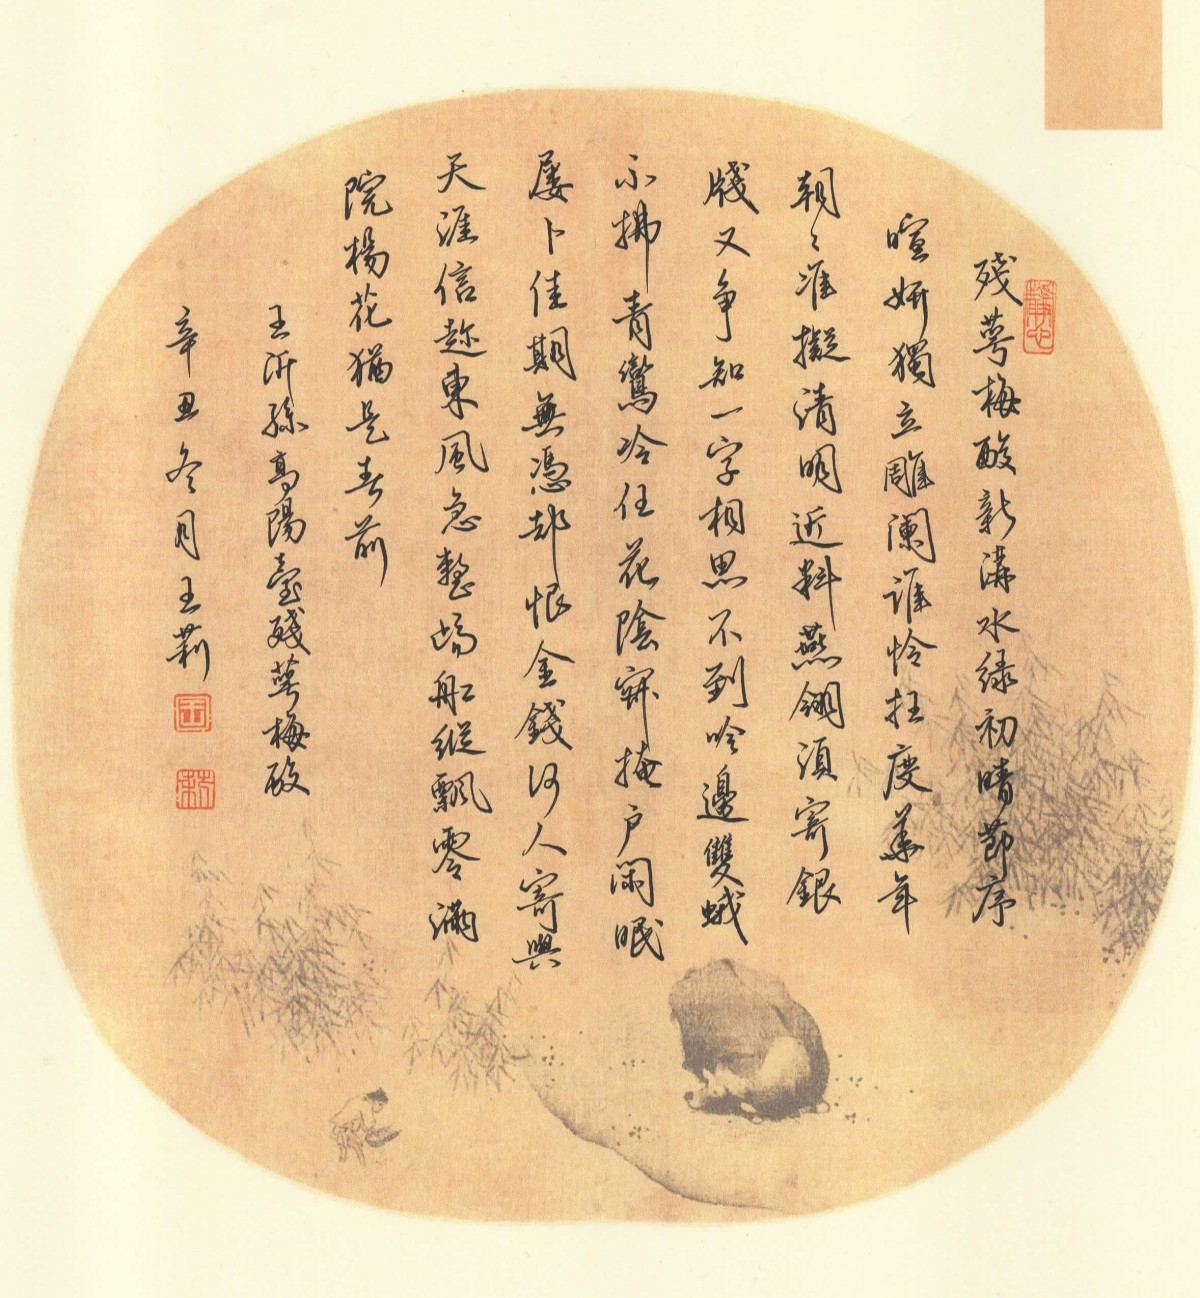 靜心
殘萼梅酸新溝水绿初晴節序
暄妍獨立雕闌誰怜枉度華年
朝々准擬清明近料燕翎須寄銀
牋又争知一字相思不到吟邊雙蛾
不拂青鸞冷任花陰寂掩户闲眠
屢卜佳期無憑却恨金錢何人寄與
天涯信趂東風急整歸船縱飄零滿
院楊花猶是春前
王沂孫高陽臺殘萼梅酸
辛丑冬月王莉
王
莉